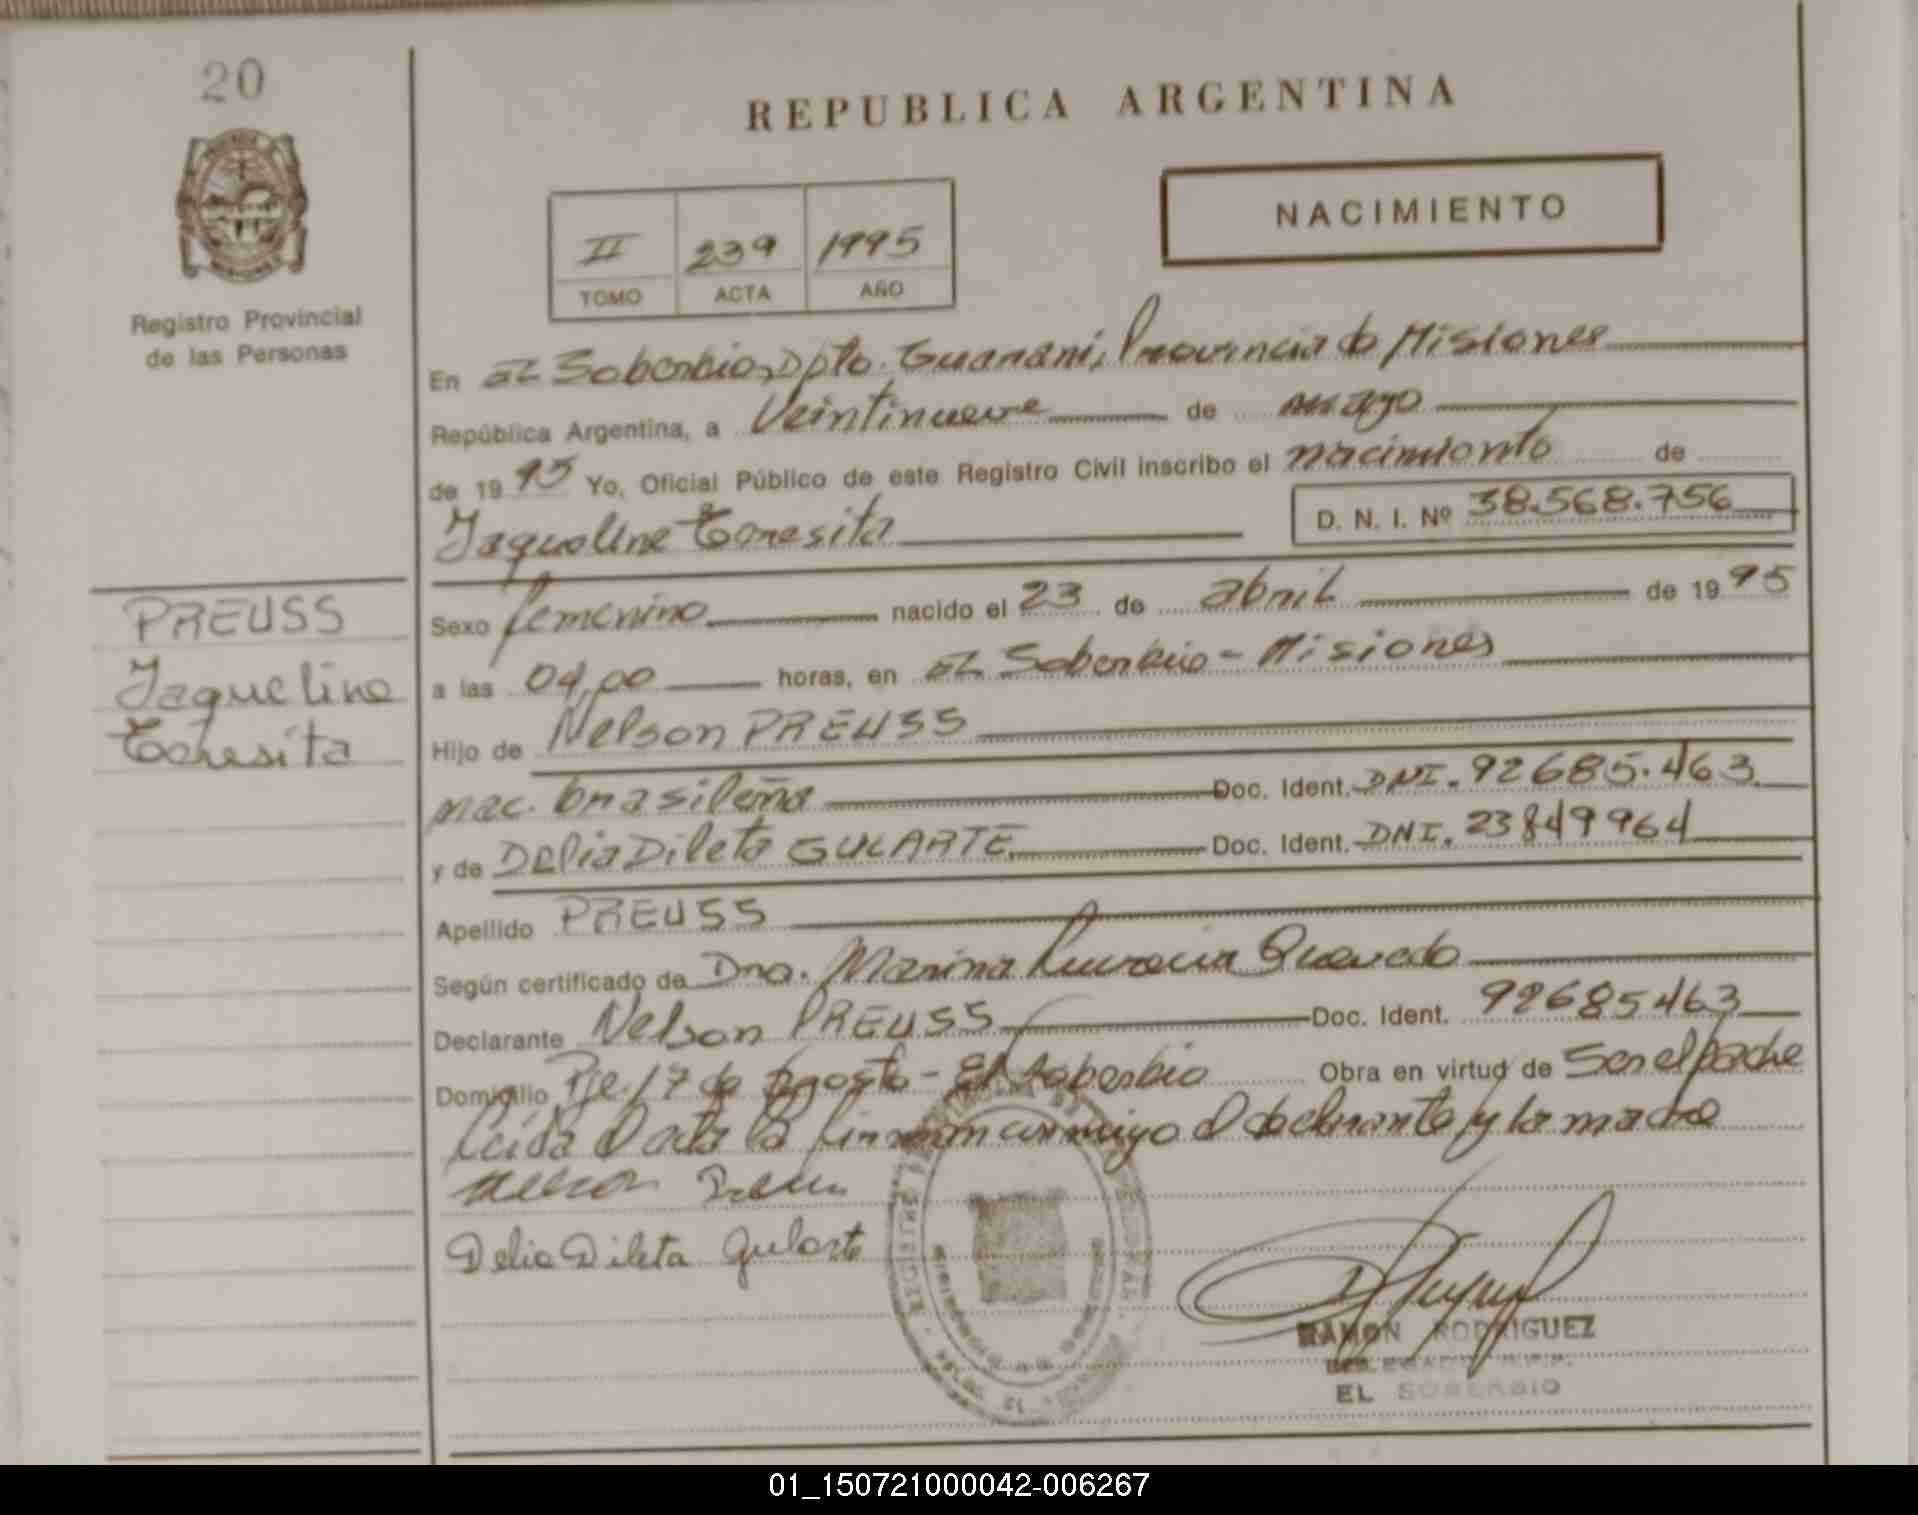 20
REPUBLICA ARGENTINA
NACIMIENTO
II 239 1995
TOMO ACTA AÑO
Registro Provincial
de las Personas
En EL Soberbio, Dpto. Guaraní, Provincia de Misiones
República Argentina, a Veintinueve de mayo
de 1995 Yo, Oficial Público de este Registro Civil inscribo el nacimiento de
Jaqueline Teresita D. N. I. Nº 38.568.756
PREUSS
Jaqueline
Teresita
Sexo femenino nacido el 23 de abril de 1995
a las 04,00 horas, en EL Soberbio - Misiones
Hijo de Nelson PREUSS
nac. brasileña Doc. Ident. DNI. 92685.463
y de Delia Dileta GULARTE Doc. Ident. DNI. 23849964
Apellido PREUSS
Según certificado de Dra. Marina Quevedo
Declarante Nelson PREUSS Doc. Ident. 92685463
Domicilio Pje. 17 de Agosto - El Soberbio Obra en virtud de Ser el padre
Leída el acta la firman conmigo el declarante y la madre
Nelson Preuss
Delia Dileta Gularte
RAMON RODRIGUEZ
DELEGADO R.P.P.
EL SOBERBIO
01_150721000042-006267